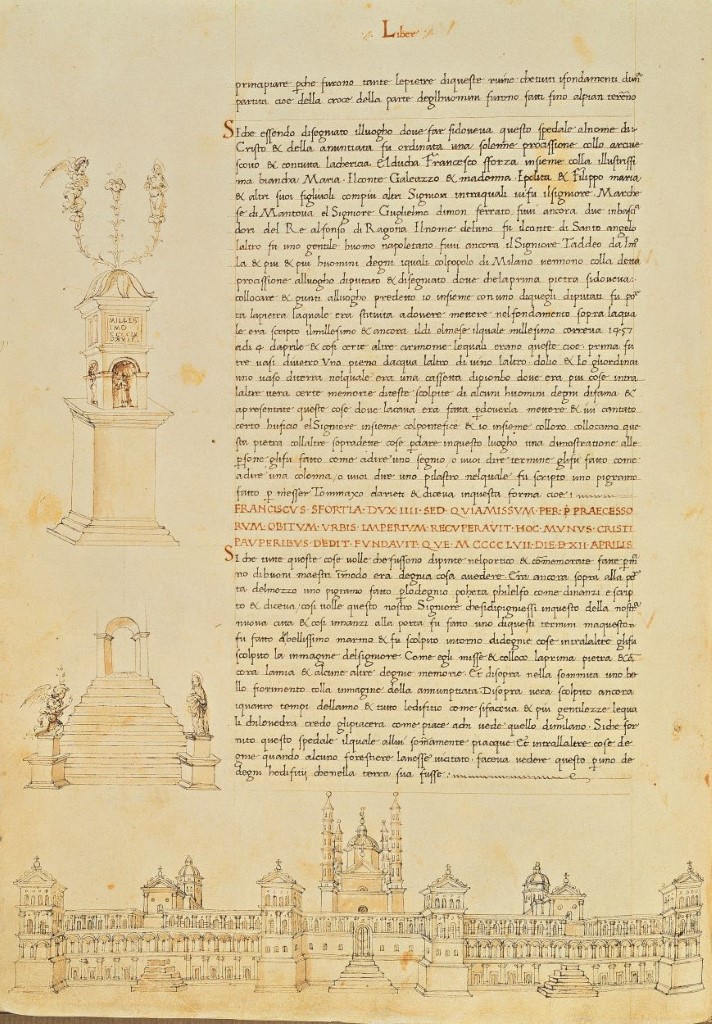 Liber
principiare perche furono tante le pietre di queste ruine che tutti i fondamenti d'un
partita cioe della croce della parte deglhuomini furono fatti fino alpian terreno
Siche essendo disegnato illuogho dove far sidoveva questo spedale alnome di
Cristo & della anuntiata fu ordinata una solenne procissione collo arcive
scovo & contutta lachericia Elducha Francesco sforza insieme colla illustrissi
ma biancha Maria · Ilconte Galeazzo & madonna Ipolita & Filippo maria
& altri suoi figliuoli compiu altri Signori intraquali vifu ilsigniore Marche
se di Mantova el Signiore Guglielmo dimon ferrato fuvi ancora due inbascia
dori del Re alfonso di Ragona Ilnome deluno fu ilconte di Santo angelo
laltro fu uno gentile huomo napoletano fuvi ancora il Signiore Taddeo da Im
la & piu & piu huomini degni iquali colpopolo di Milano vennono colla detta
procissione alluogho diputato & disegnato dove chelaprima pietra sidoveva
collocare & giunti alluogho predetto io insieme conuno diquegli diputati fu po
ta lapietra laquale era stituita adovere mettere nelfondamento sopra laqua
le era scripto ilmillesimo & ancora ildi elmese ilquale millesimo correva 1457
adi 4 daprile & cosi certe altre cirimonie lequali erano queste cioe · prima fu
tre vasi divetro Uno pieno dacqua laltro di vino laltro dolio & Io
uno vaso diterra nelquale era una cassetta dipionbo dove era piu cose intra
laltre vera certe memorie diteste scolpite di alcuni huomini degni difama &
apresentate queste cose dove lacava era fatta perdoverla mettere & ivi cantato
certo huficio elSigniore insieme colpontefice & io insieme colloro collocamo que
sta pietra collaltre sopradette cose per dare inquesto luogho una dimostratione alle
persone fatto come adire uno segnio o vuoi dire termine fu fatto come
adire una colonna o vuoi dire uno pilastro nelquale fu scripto uno pigramo
fatto per messer Tommaxo darieti & diceva inquesta forma cioe :
FRANCISCVS · SFORTIA · DVX · IIII · SED · QVI AMISSVM · PER · PRAECESSO
RVM · OBITVM · VRBIS · IMPERIVM · RECVPERAVIT · HOC · MVNVS · CRISTI
PAVPERIBVS · DEDIT · FVNDAVIT · QVE · M CCCC LVII · DIE · XII · APRILIS
Siche tutte queste cose volle che fussono dipinte nelportico & comemorate
no dibuoni maestri imodo era degnia cosa avedere Era ancora sopra alla po
ta delmezzo uno pigramo fatto poheta philelfo come dinanzi e scrip
to & diceva cosi volle questo nostro Signiore chesidipigniessi inquesto della nostra
nuova citta & cosi innanzi alla porta fu fatto uno diquesti termini maquesto
fu fatto dibellissimo marmo & fu scolpito intorno didegne cose intralaltre
scolpito la inmagine delsigniore Come egli misse & colloco laprima pietra & an
cora lamia & alcune altre degne memorie Et disopra nella sommita uno be
llo fiorimento colla inmagine della annuntiata Disopra vera scolpito ancora
iquatro tempi dellanno & tutto ledifitio come sifaceva & piu gentilezze lequa
li chilovedra credo glipiacera come piace achi vede quello dimilano Siche for
nito questo spedale ilquale allui sommamente piacque Et intrallaltre cose de
gne quando alcuno forestiere lanesse faceva vedere questo per uno de
degni hedifitii che nella terra sua fusse :
MILLES
IMO